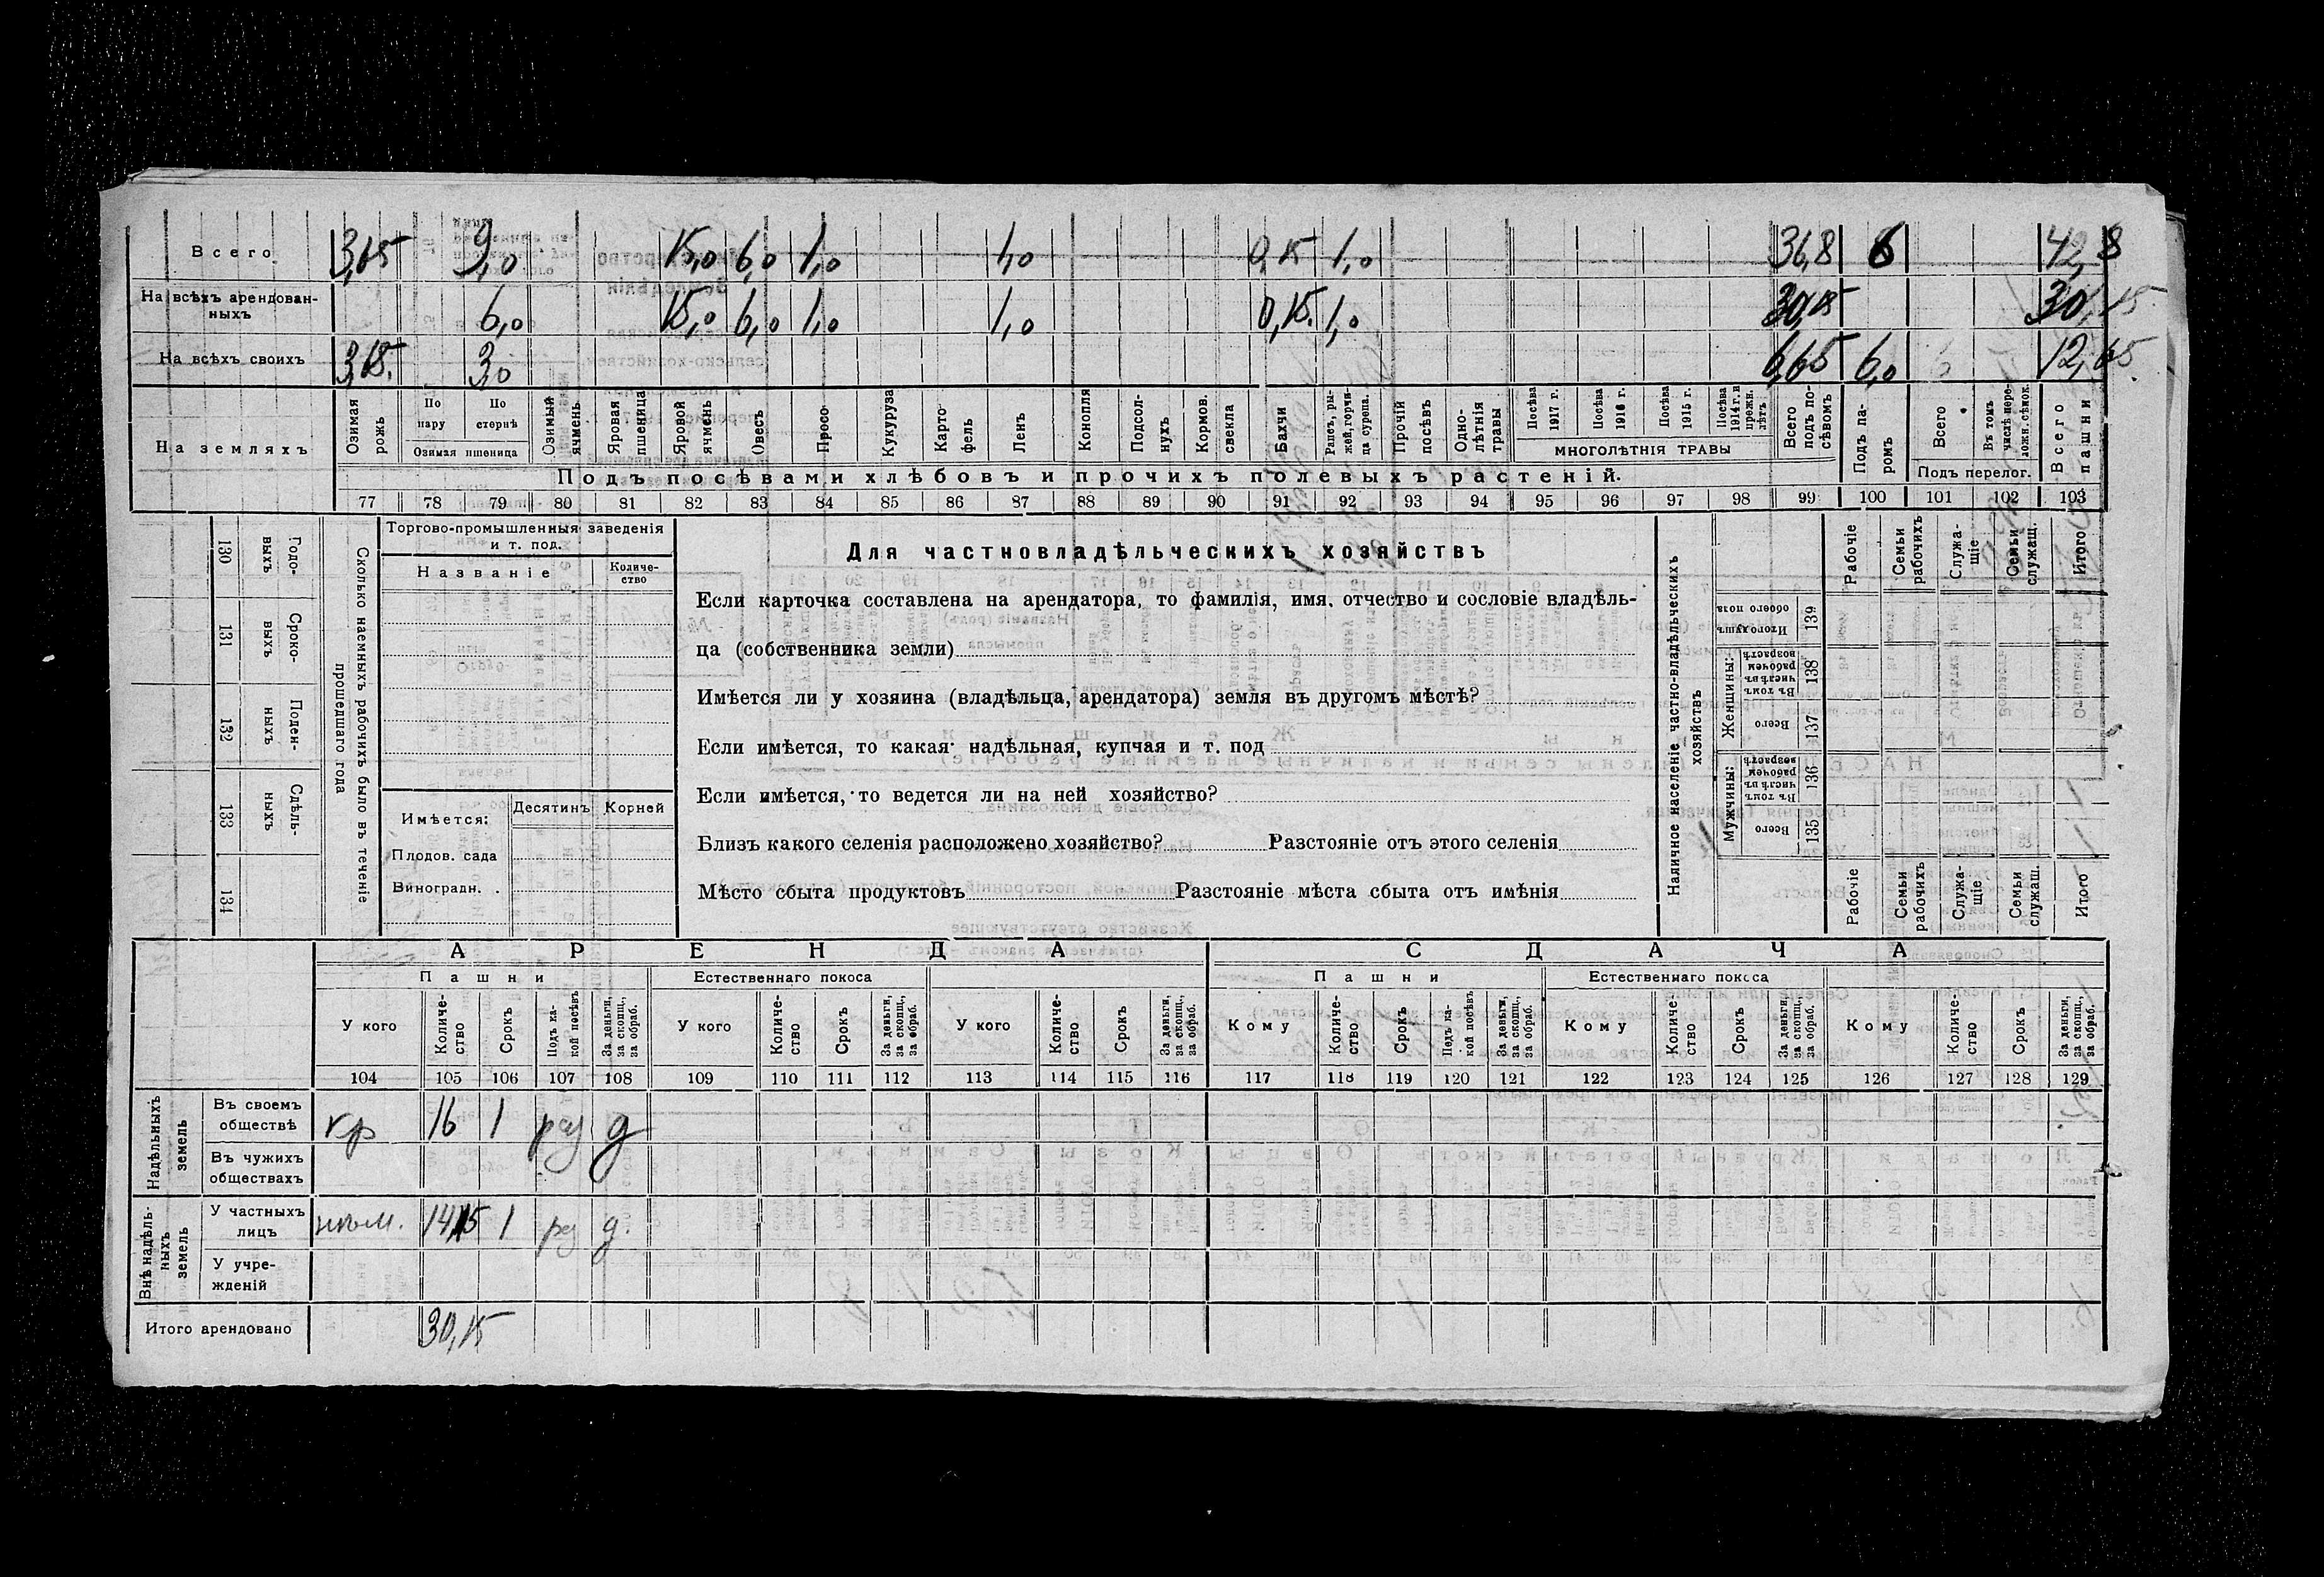 Всего 3,65 9,0 15,0 6,0 1,0 1,0 0,15 1,0 36,8 6 42,8
На всѣхъ арендован-
ныхъ 6,0 15,0 6,0 1,0 1,0 0,15. 1,0 30,15 30,15
На всѣхъ своихъ 3,65. 3,0 6,65 6,0 12,65
На земляхъ
Озимая рожь
По пару
По стернѣ
Озимая пшеница
Озимый ячмень
Яровая пшеница
Яровой ячмень
Овесъ
Просо
Кукуруза
Карто-
фель
Ленъ
Конопля
Подсол-
нухъ
Кормов.
свекла
Бахчи
Рапсъ, ры-
жей, горчи-
ца сурепа.
Прочій
посѣвъ
Одно-
лѣтнія
травы
Посѣва
1917 г.
Посѣва
1916 г.
Посѣва
1915 г.
Посѣва
1914 г. и
прежн.
лѣтъ
МНОГОЛѢТНІЯ ТРАВЫ
Всего
подъ по-
сѣвомъ
Подъ па-
ромъ
Всего
Въ томъ
числѣ пере-
ложн. сѣнок.
Подъ перелог.
Всего
пашни
Подъ посѣвами хлѣбовъ и прочихъ полевыхъ растеній.
77 78 79 80 81 82 83 84 85 86 87 88 89 90 91 92 93 94 95 96 97 98 99 100 101 102 103
130 Годо-
выхъ
131 Сроко-
выхъ
132 Поден-
ныхъ
133 Сдѣль-
ныхъ
134
Сколько наемныхъ рабочихъ было въ теченіе
прошедшаго года
Торгово-промышленныя заведенія
и т. под.
Названіе
Количе-
ство
Имѣется: Десятинъ Корней
Плодов. сада
Виноградн. .
Для частновладѣльческихъ хозяйствъ
Если карточка составлена на арендатора, то фамилія, имя, отчество и сословіе владѣль-
ца (собственника земли)
Имѣется ли у хозяина (владѣльца, арендатора) земля въ другомъ мѣстѣ?
Если имѣется, то какая надѣльная, купчая и т. под
Если имѣется, то ведется ли на ней хозяйство?
Близъ какого селенія расположено хозяйство? Разстояніе отъ этого селенія
Мѣсто сбыта продуктовъ Разстояніе мѣста сбыта отъ имѣнія
Наличное населеніе частно-владѣльческихъ
хозяйствъ
Рабочіе
Семьи
рабочихъ
Служа-
щіе
Семьи
служащ.
Итого
Итого душъ
обоего пола 139
Женщины:
Въ томъ
числѣ въ
рабочемъ
возрастѣ 138
Всего 137
Мужчины:
Въ томъ
числѣ въ
рабочемъ
возрастѣ 136
Всего 135
Рабочіе
Семьи
рабочихъ
Служа-
щіе
Семьи
служащ.
Итого
АРЕНДА СДАЧА
Пашни Естественнаго покоса Пашни Естественнаго покоса
У кого
Количе-
ство
Срокъ
Подъ ка-
кой посѣвъ
За деньги,
за скопщ.,
за обраб.
У кого
Количе-
ство
Срокъ
За деньги,
за скопщ.,
за обраб.
У кого
Количе-
ство
Срокъ
За деньги,
за скопщ.,
за обраб.
Кому
Количе-
ство
Срокъ
Подъ ка-
кой посѣвъ
За деньги,
за скопщ.,
за обраб.
Кому
Количе-
ство
Срокъ
За деньги,
за скопщ.,
за обраб.
Кому
Количе-
ство
Срокъ
За деньги,
за скопщ.,
за обраб.
104 105 106 107 108 109 110 111 112 113 114 115 116 117 118 119 120 121 122 123 124 125 126 127 128 129
Надѣльныхъ
земель
Въ своемъ
обществѣ кр 16 1 раз д
Въ чужихъ
обществахъ
Внѣ надѣль-
ныхъ
земель
У частныхъ
лицъ 14,15 1 рз д.
У учре-
жденій
Итого арендовано 30,15